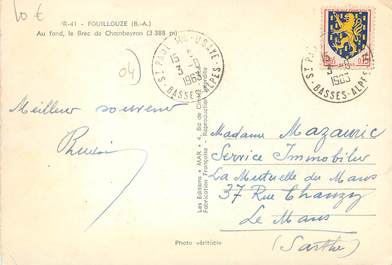 10 €
R-41 - FOUILLOUZE (B.-A.)
Au fond, le Brec de Chambeyron (3 388 m)
04
ST PAUL SUR UBAYE
15 H
3 - 8
1963
BASSES-ALPES
15 H
3 - 8
1963
BASSES-ALPES
Meilleur souvenir
Les Editions "MAR"
Fabrication Française - Reproduction interdite
Madame Mazauric
Service Immobilier
La Mutuelle du Mans
37 Rue Chanzy
Le Mans
(Sarthe)
Photo véritable